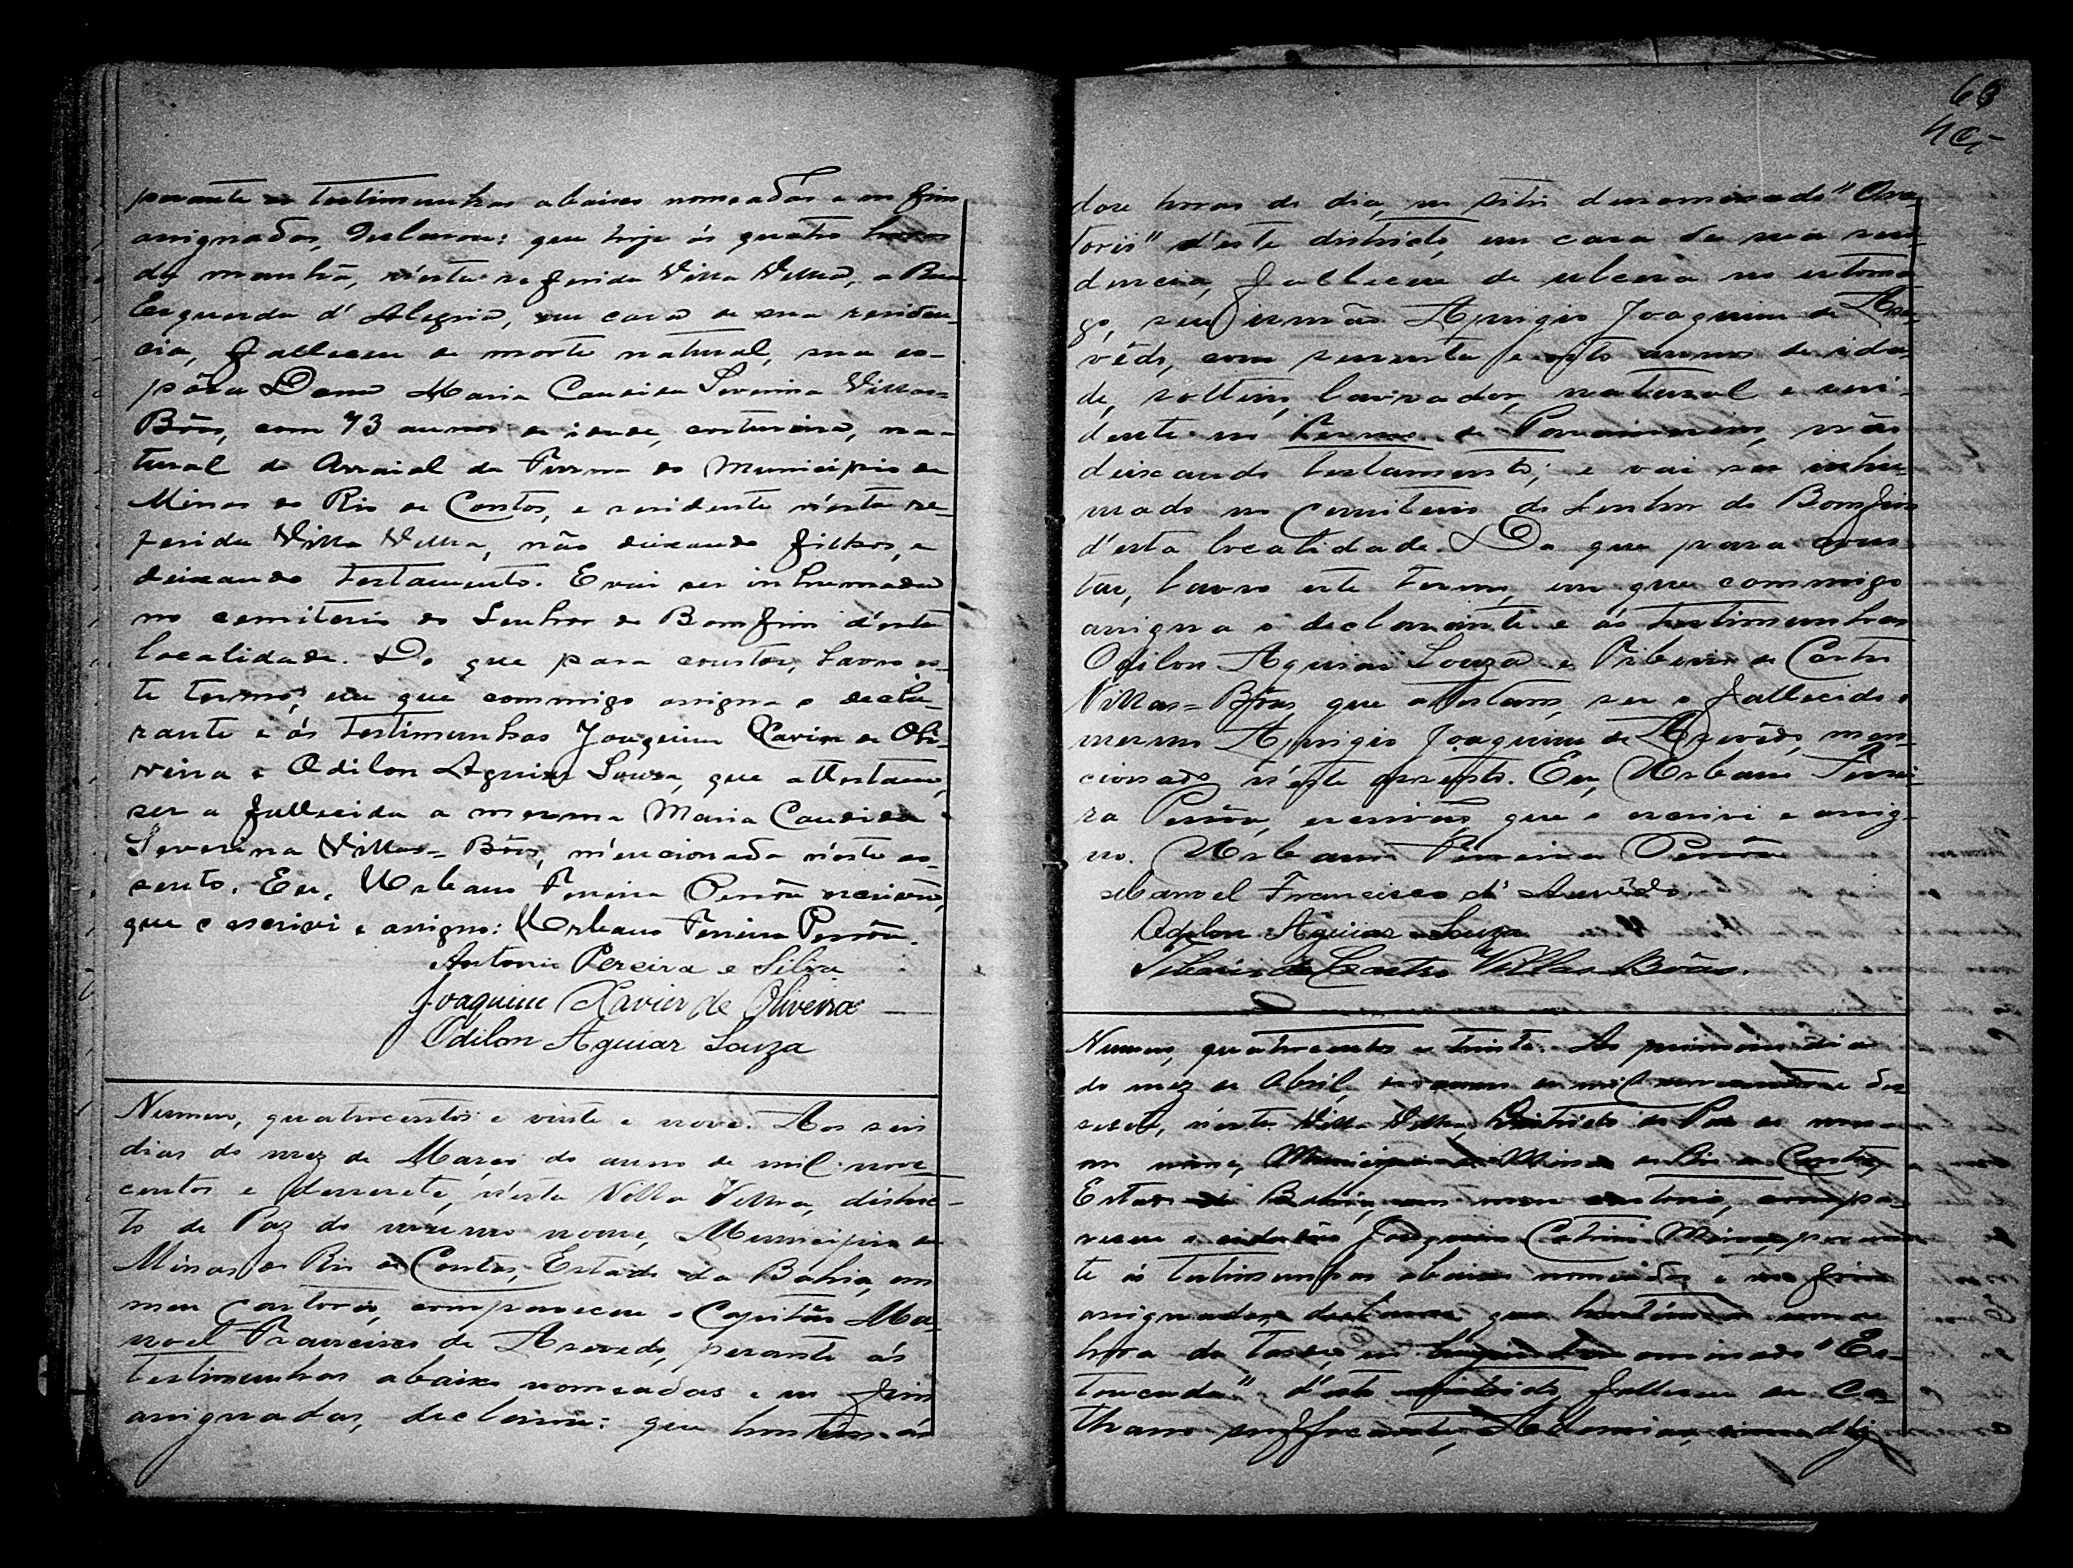 perante as testimunhas abaixo nomeadas e no fim
assignados, declarou: que hoje ás quatro horas
da manhã, n'esta referida Villa Velha, a Rua
Esquerda d'Alegria, em casa de sua residen-
cia, falleceu de morte natural, sua es-
pôsa Dona Maria Candida Severina Villas=
Bôas, com 73 annos de idade, costureira, na-
tural do Arraial da Furna do Municipio de
Minas do Rio de Contas, e residente n'esta re-
ferida Villa Velha, não deixando filhos, e
deixando testamento. E vai ser inhumada
no cemiterio do Senhor do Bomfim d'esta
localidade. Do que para constar, lavro es-
te termo, em que commigo assigna o decla-
rante e ás testimunhas Joaquim Xavier de Oli-
veira e Odilon Aguiar Souza, que attestam,
ser a fallecida a mesma Maria Candida
Severina Villas=Bôas, mencionada n'este as-
sento. Eu, Urbano Ferreira Pessôa escrivão,
que o escrivi e assigno: Urbano Ferreira Pessôa.
Antonio Pereira e Silva
Joaquim Xavier de Oliveira
Odilon Aguiar Souza
Numero, quatrocentos e vinte e nove. Aos seis
dias do mez de Março do anno de mil nove-
centos e desesete, n'esta Villa Velha, distric-
to de Paz do mesmo nome, Municipio de
Minas do Rio de Contas, Estado da Bahia, em
meu cartorio, compareceu o Capitão Ma-
noel Francisco de Azevedo, perante ás
testimunhas abaixo nomeadas e no fim
assignadas, declarou: que hontem ás
63
doze horas do dia, no sitio denominado "
d'este districto, em casa de sua resi-
dencia, falleceu de ulcera no estoma-
go, seu irmão Aprigio Joaquim de Aze-
vêdo, com sessenta e oito annos de ida-
de, solteiro, lavrador, natural e resi-
dente no não
deixando testamento; e vai ser inhu-
mado no cemiterio do Senhor do Bomfim
d'esta localidade. Do que para cons-
tar, lavro este termo, em que commigo
assigna o declarante e ás testimunhas
Odilon Aguiar Souza e Tiberio de Castro
Villas=Bôas, que attestam, ser o fallecido o
mesmo Aprigio Joaquim de Azevêdo, men-
cionado n'este assento. Eu, Urbano Ferrei-
ra Pessôa, escrivão, que o escrivi e assig-
no. Urbano Ferreira Pessôa
Manoel Francisco d'Azevêdo
Odilon Aguiar Souza
Tiberio de Castro Villas Bôas.
Numero, quatrocentos e trinta. Ao primeiro dia
do mez de Abril, do anno de mil novecentos e de-
sesete, n'esta Villa Velha, Districto de Paz do mes-
mo nome, Municipio de Minas do Rio de Contas,
Estado da Bahia, em meu cartorio, compa-
receu o cidadão Joaquim peran-
te ás testimunhas abaixo nomeadas e no fim
assignadas, declarou que hontem á uma
hora da tarde, no denominado "Es-
d'este districto, falleceu de Ca-
tharro suffocante,